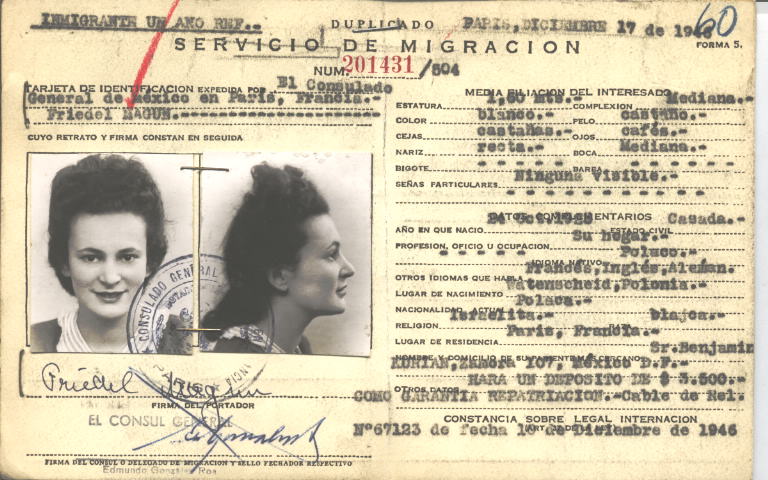 INMIGRANTE UN AÑO REF.-
DUPLICADO
PARIS, DICIEMBRE 17 de 1946
60
SERVICIO DE MIGRACION
FORMA 5.
NUM. 201431/504
TARJETA DE IDENTIFICACION EXPEDIDA POR El Consulado
General de México en Paris, Francia.-
Friedel MAGUN.-
CUYO RETRATO Y FIRMA CONSTAN EN SEGUIDA
CONSULADO GENERAL
Friedel Magun
FIRMA DEL PORTADOR
EL CONSUL GENERAL
FIRMA DEL CONSUL O DELEGADO DE MIGRACION Y SELLO FECHADOR RESPECTIVO
Edmundo González Roa
MEDIA FILIACION DEL INTERESADO
ESTATURA 1,60 Mts.- COMPLEXION Mediana.-
COLOR blanco.- PELO castaño.-
CEJAS castañas.- OJOS cafés.-
NARIZ recta.- BOCA Mediana.-
BIGOTE - - - - - BARBA - - - - -
SEÑAS PARTICULARES Ninguna visible.-
DATOS COMPLEMENTARIOS
AÑO EN QUE NACIO Oct. ESTADO CIVIL Casada.-
PROFESION, OFICIO U OCUPACION Su hogar.-
IDIOMA NATIVO Polaco.-
OTROS IDIOMAS QUE HABLA Francés, Inglés, Alemán.
LUGAR DE NACIMIENTO Watenscheid, Polonia.-
NACIONALIDAD ACTUAL Polaca.-
RELIGION Israelita.-
LUGAR DE RESIDENCIA Paris, Francia.-
NOMBRE Y DOMICILIO DE SU PARIENTE MAS CERCANO Sr. Benjamin
KURIAN, Zamora 107, México D.F.-
OTROS DATOS HARA UN DEPOSITO DE $ 3.500.-
COMO GARANTIA REPATRIACION.-Cable de Rel.
CONSTANCIA SOBRE LEGAL INTERNACION
Nº67123 de fecha de Diciembre de 1946